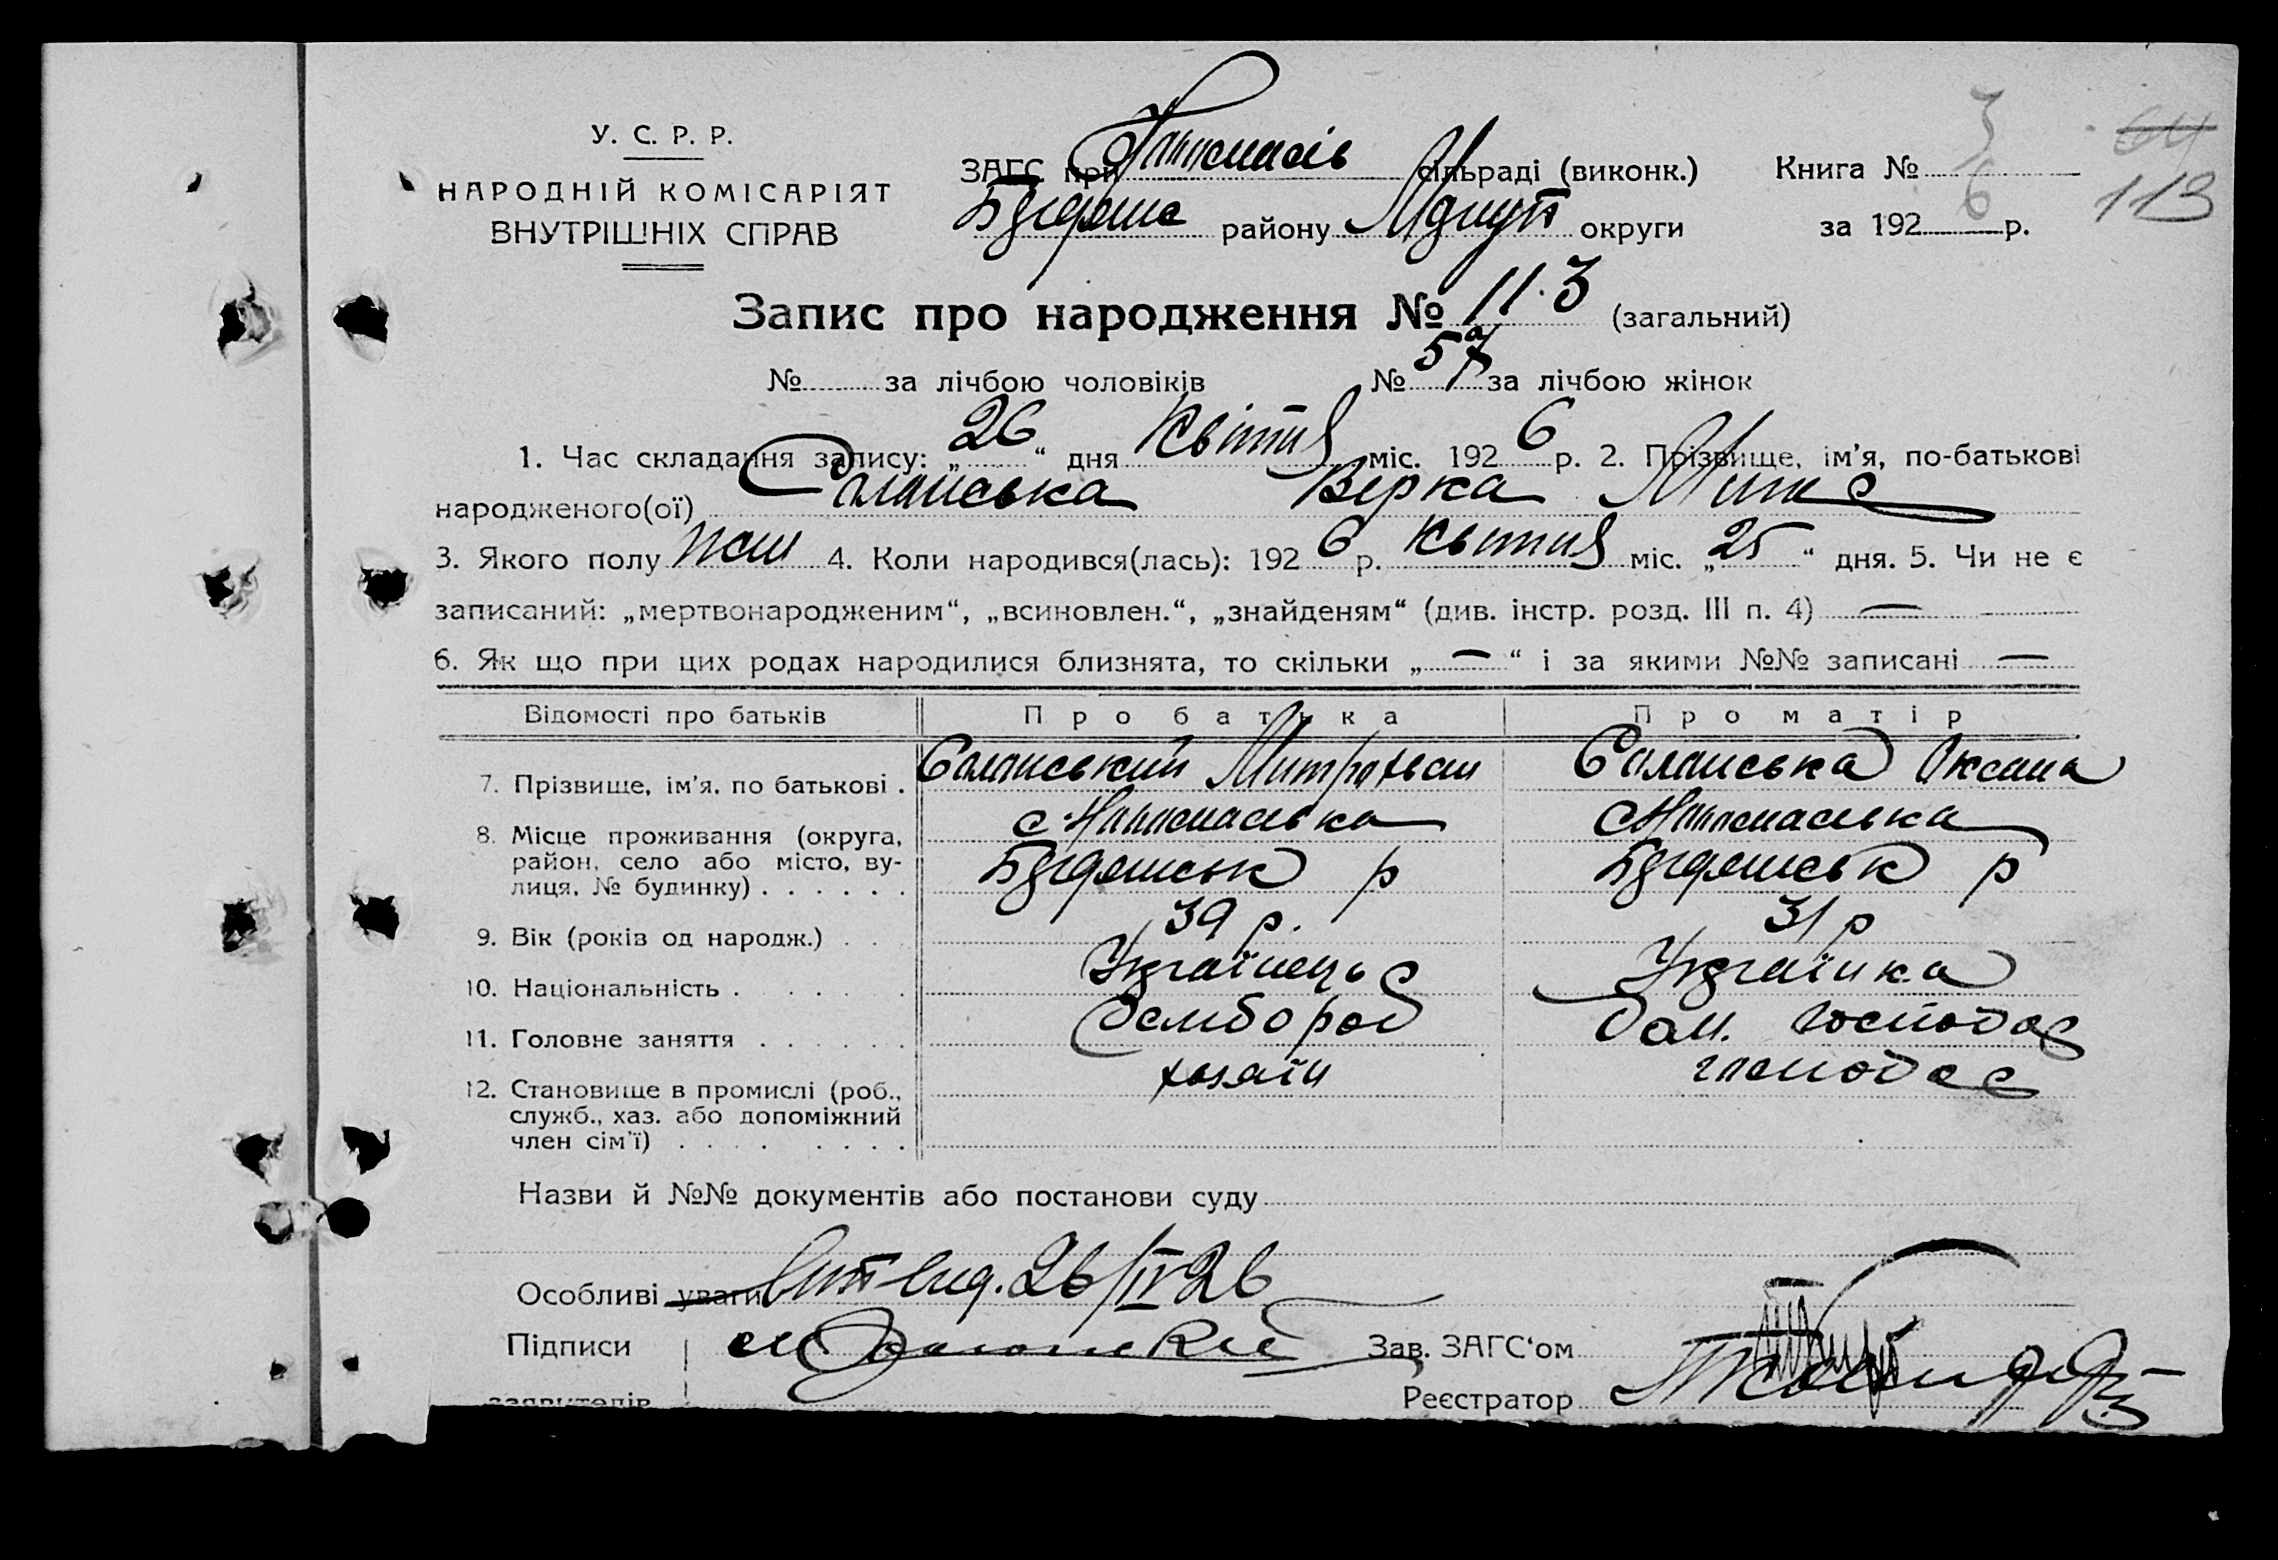 У. С. Р. Р.
НАРОДНІЙ КОМІСАРІЯТ
ВНУТРІШНІХ СПРАВ
ЗАГС при сільраді (виконк.)
району округи
Книга № 3
за 1926 р.
64
113
Запис про народження № 113 (загальний)
№ за лічбою чоловіків № 57 за лічбою жінок
1. Час складання запису: „26“ дня Квітня міс. 1926 р. 2. Прізвище, ім'я, по-батькові
народженого(ої) Саланська Вірка
3. Якого полу жін 4. Коли народився(лась): 1926 р. Квітня міс. „25“ дня. 5. Чи не є
записаний: „мертвонародженим“, „всиновлен.“, „знайденям“ (див. інстр. розд. III п. 4) —
6. Як що при цих родах народилися близнята, то скільки „—“ і за якими №№ записані —
Відомості про батьків Про батька Про матір
7. Прізвище, ім'я, по батькові . Саланський Митрофан Саланська Оксана
8. Місце проживання (округа,
район, село або місто, ву-
лиця, № будинку) . . . . . . р р
9. Вік (років од народж.) . . . 39 р. 31 р
10. Національність . . . . . . Українець Українка
11. Головне заняття . . . . . . хлібороб дом. господар
12. Становище в промислі (роб.,
служб., хаз. або допоміжний
член сім'ї) . . . . . . . . хазяїн господар
Назви й №№ документів або постанови суду
Особливі уваги 26/IV 26
Підписи Зав. ЗАГС'ом
заявителів Реєстратор